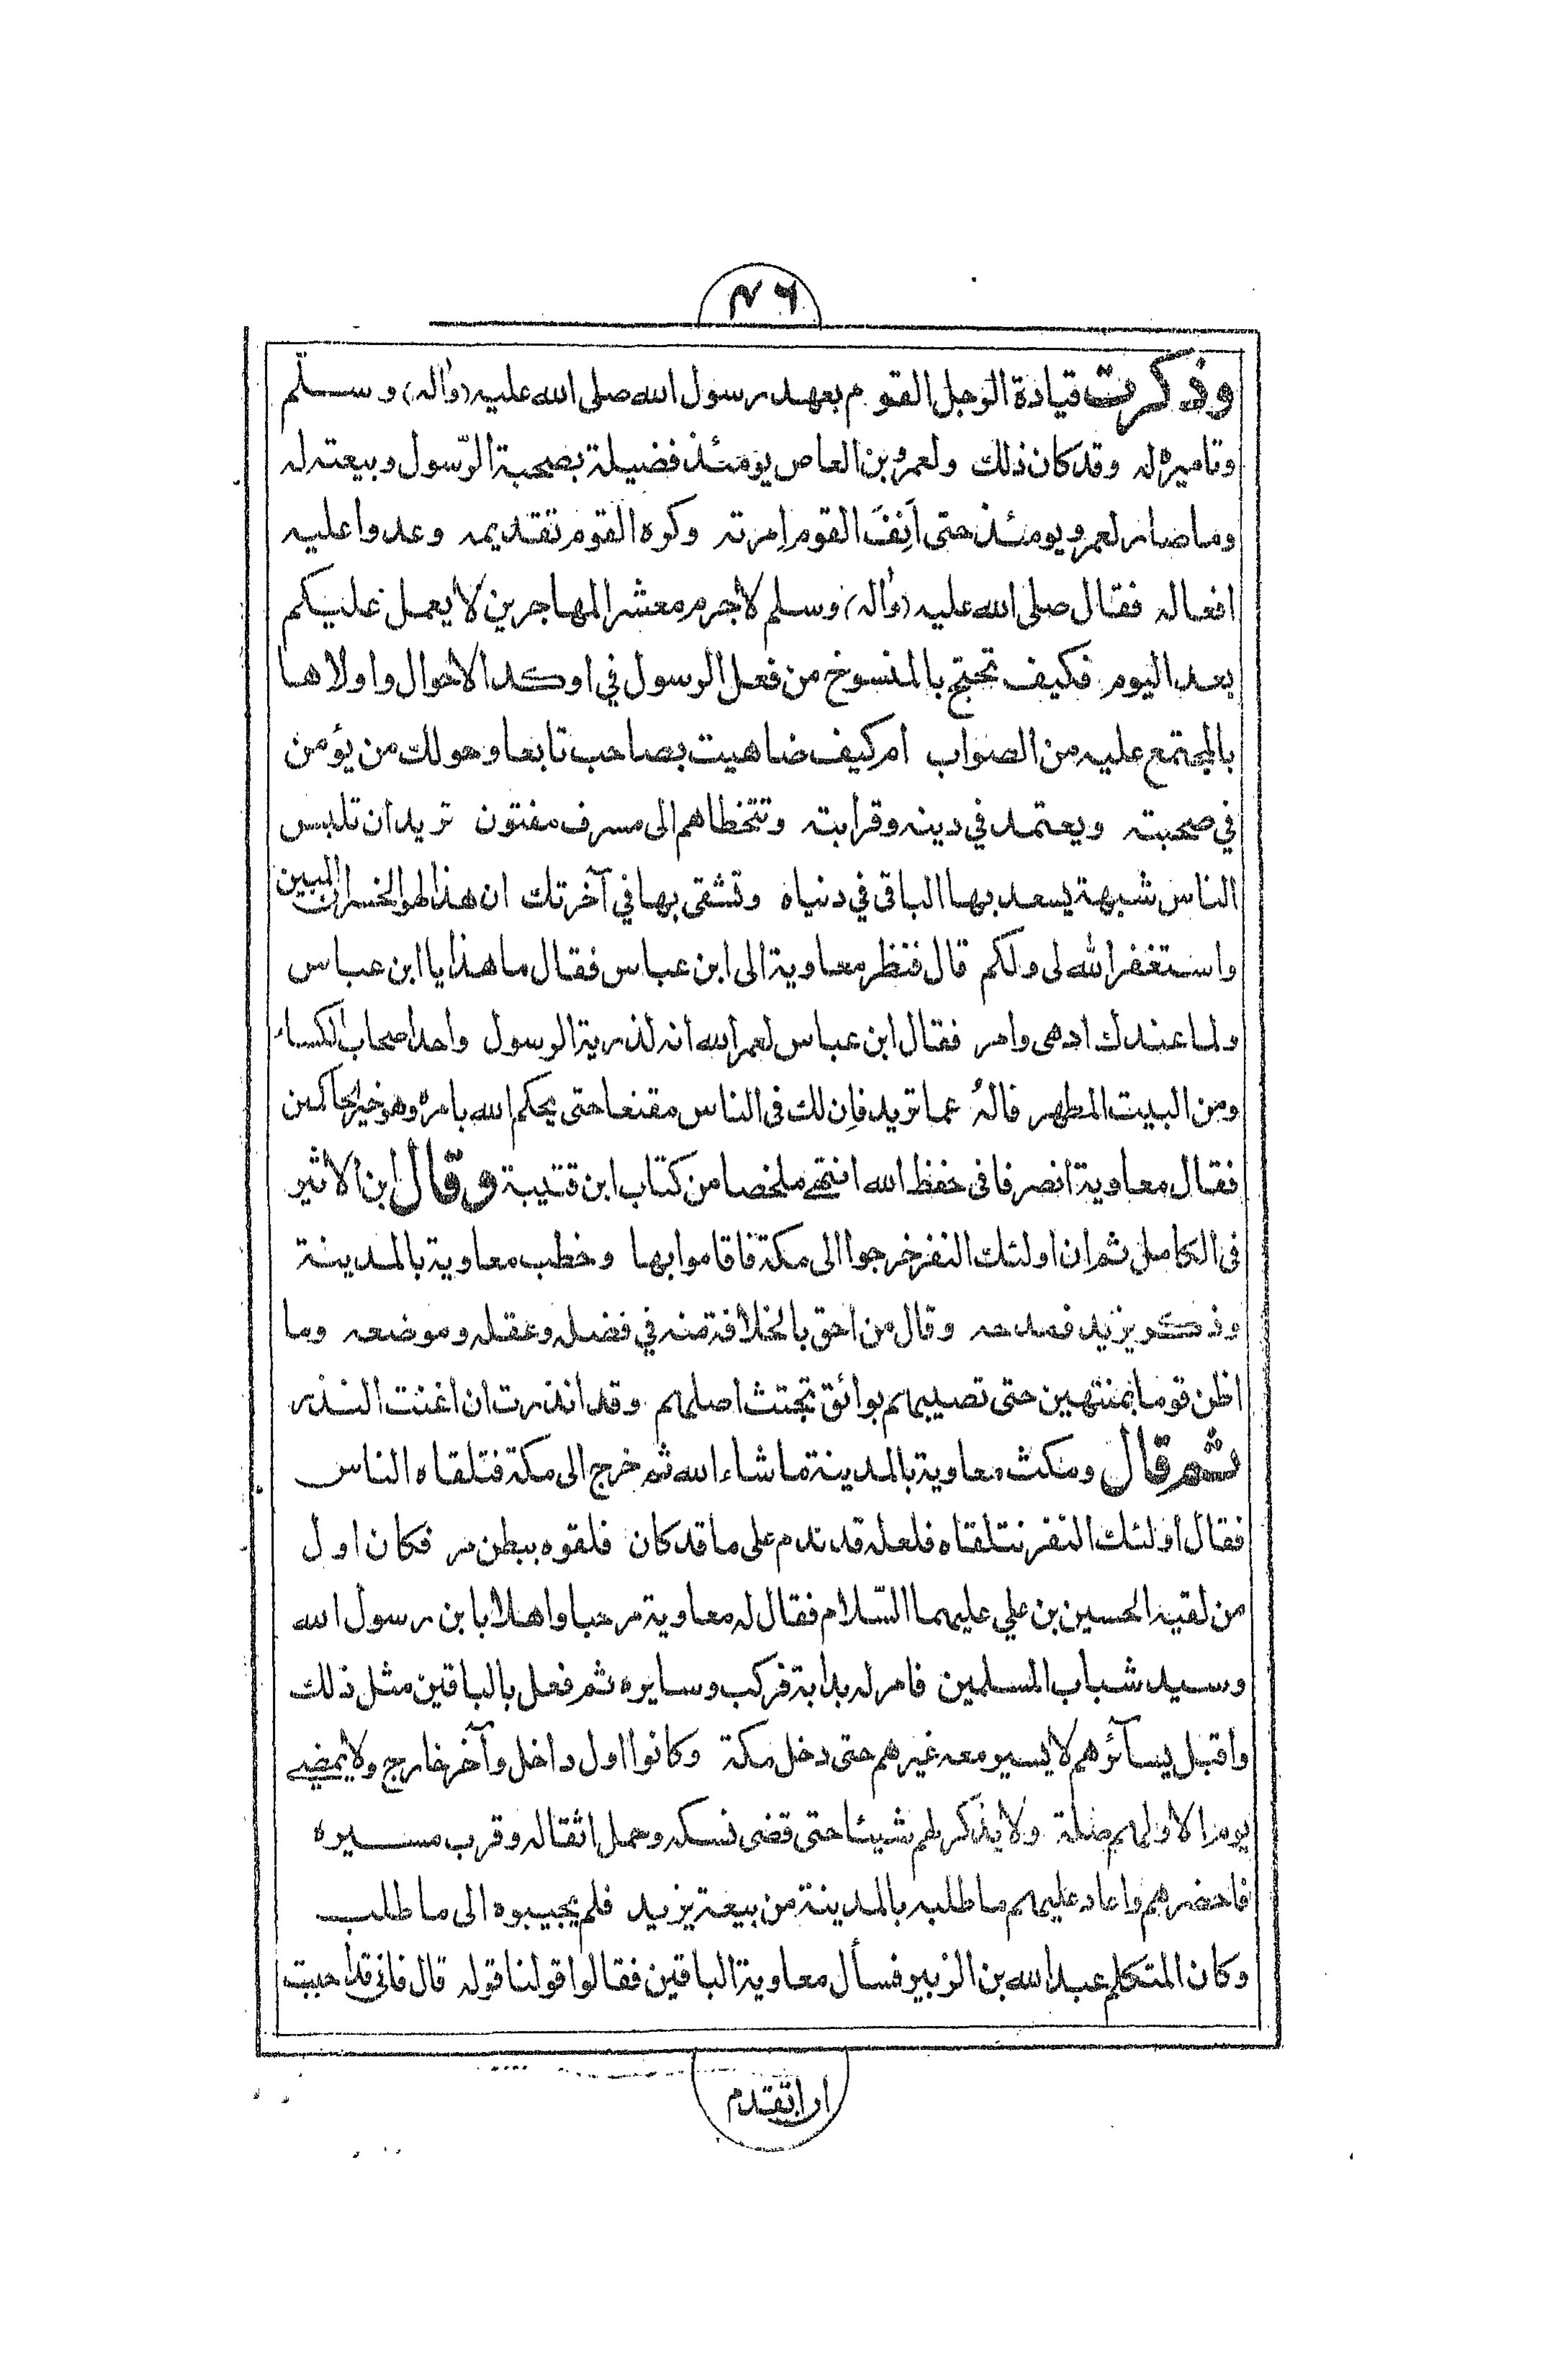 ٤٦
وذكرت قيادة الرجل القوم بعهد رسول الله صلى الله عليه (وآله) وسلّم
وتاميره له وقد كان ذلك ولعمرو بن العاص يومئذ فضيلة بصحبة الرّسول وبيعته له
وما صار لعمرو يومئذ حتى اَنِفَ القوم اِمرته وكره القوم تقديمه وعدوا عليه
افعاله فقال صلى الله عليه (وآله) وسلم لاجرم معشر المهاجرين لا يعمل عليكم
بعد اليوم فكيف تحتج بالمنسوخ من فعل الرسول في اوكد الاحوال واولاها
بالمجتمع عليه من الصواب ام كيف ضاهيت بصاحب تابعا وحولك من يؤمن
في صحبته ويعتمد في دينه وقرابته وتتخطاهم الى مسرف مفتون تريد ان تلبس
الناس شبهة يسعد بها الباقى في دنياه وتشقى بها في آخرتك ان هذا لهو الخسران المبين
واستغفر الله لى ولكم قال فنظر معاوية الى ابن عباس فقال ما هذا يا ابن عباس
ولما عندك ادهى وامر فقال ابن عباس لعمر الله انه لذرية الرسول واحد اصحاب الكساء
ومن البيت المطهر فالهُ عما تريد فاِن لك فى الناس مقنعا حتى يحكم الله بامره وهو خير الحاكمين
فقال معاوية انصرفا فى حفظ الله انتهى ملخصا من كتاب ابن قتيبة وقال ابن الاثير
فى الكامل ثم ان اولئك النفر خرجوا الى مكة فاقاموا بها وخطب معاوية بالمدينة
وذكر يزيد فمدحه وقال من احق بالخلافة منه في فضله وعقله وموضعه وما
اظن قوما بمنتهين حتى تصيبهم بوائق تجتث اصلهم وقد انذرت ان اغنت النذر
ثم قال ومكث معاوية بالمدينة ما شاء الله ثم خرج الى مكة فتلقاه الناس
فقال اولئك النفر نتلقاه فلعله قد ندم على ما قد كان فلقوه ببطن مر فكان اول
من لقيه الحسين بن علي عليهما السّلام فقال له معاوية مرحبا واهلا بابن رسول الله
وسيد شباب المسلمين فامر له بدابة فركب وسايره ثم فعل بالباقين مثل ذلك
واقبل يسآئرهم لا يسير معه غيرهم حتى دخل مكة وكانوا اول داخل وآخر خارج ولا يمضي
يوم الا ولهم صلة ولا يذكر لهم شيئا حتى قضى نسكه وحمل اثقاله وقرب مسيره
فاحضرهم واعاد عليهم ما طلبه بالمدينة من بيعة يزيد فلم يجيبوه الى ما طلب
وكان المتكلم عبد الله بن الزبير فسأل معاوية الباقين فقالوا قولنا قوله قال فانى قد احببت
ان اتقدم